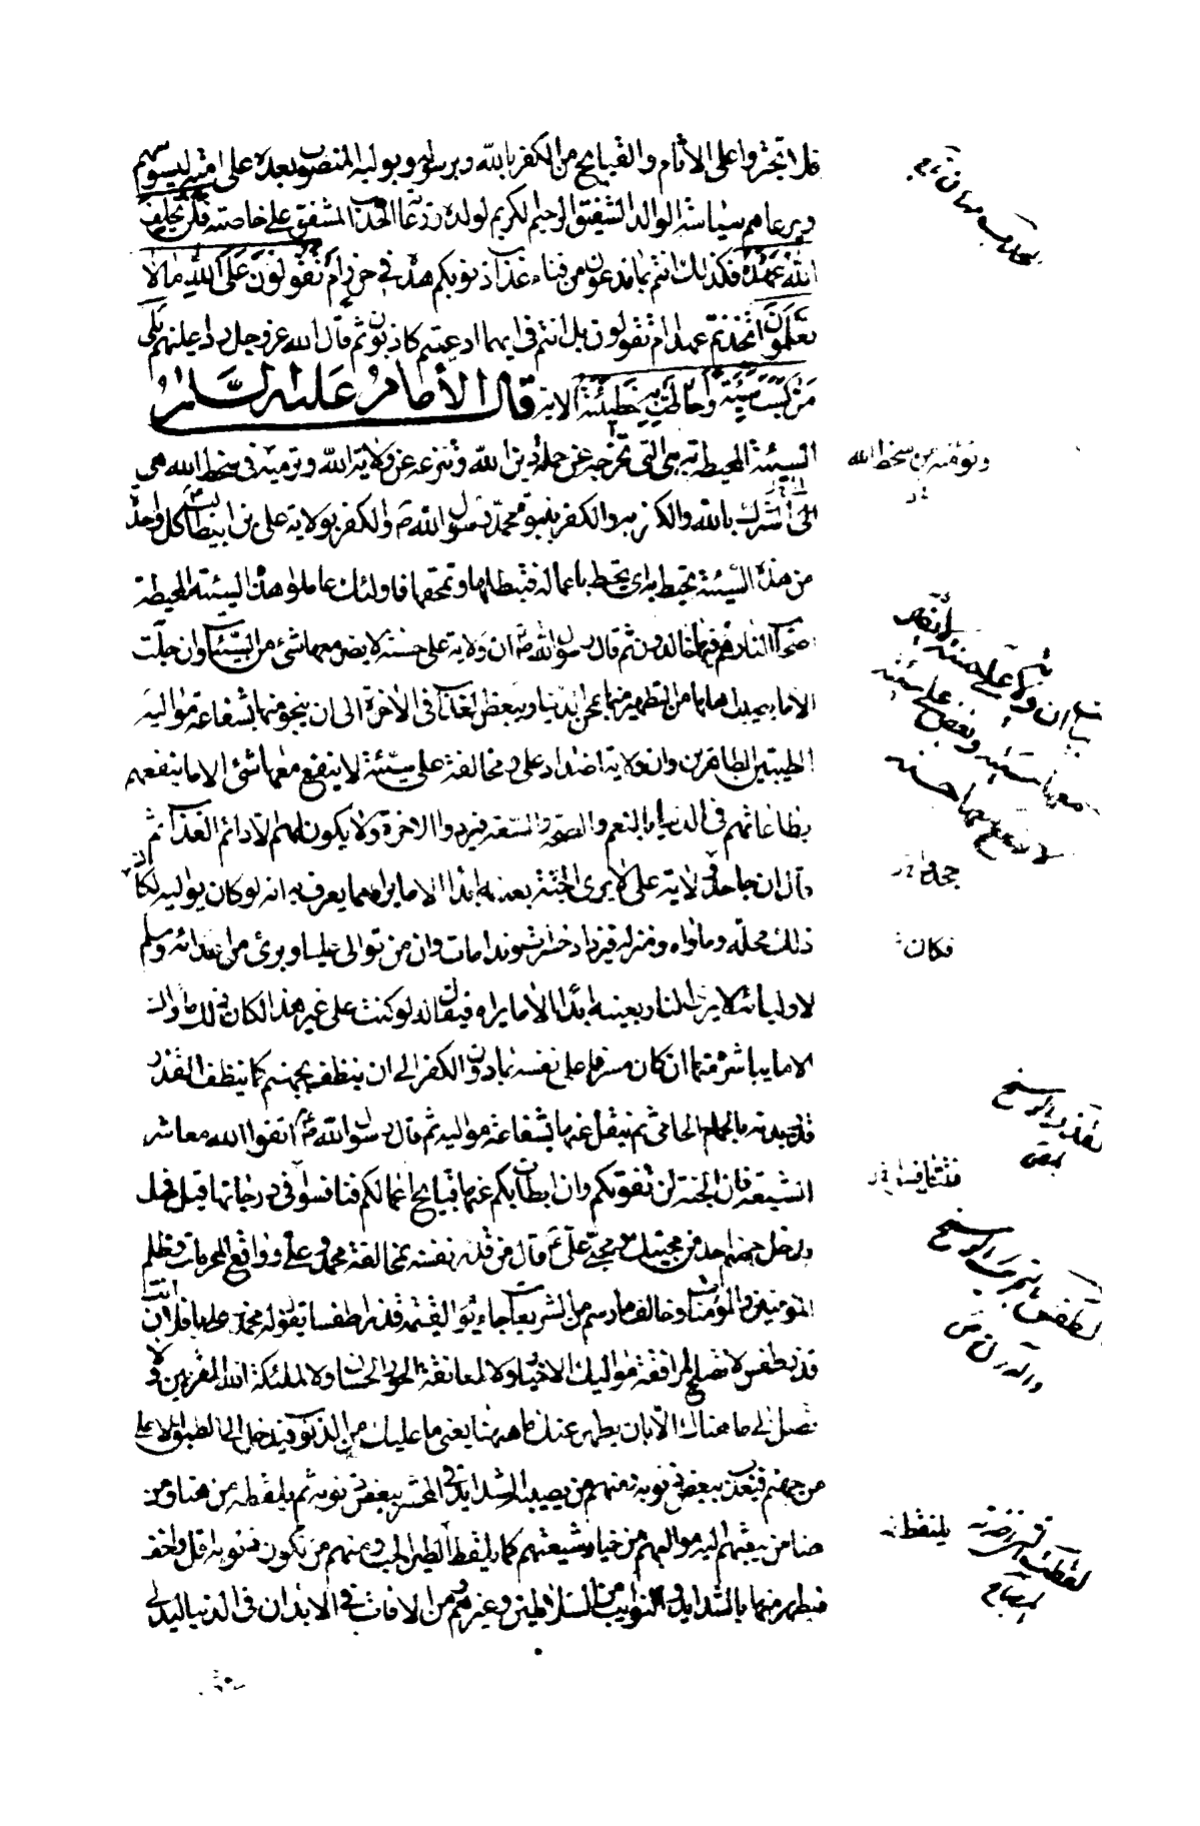 فلا تجتروا على الاثام والقبايح من الكفر بالله وبرسوله وبوليه المنصوب بعده على امته ليسوسهم
ويرعاهم سياسة الوالد الشفيق الرحيم الكريم لولده ورعاية الحدب المشفق على خاصته فلن يخلف
الله عهده فكذلك انتم بما تدعون من فناء عذاب ذنوبكم هذه في حرز ام تقولون على الله مالا
تعلمون اتخذتم عهدا ام تقولون بل انتم في ايهما ادعيتم كاذبون ثم قال الله عز وجل ردا عليهم بلى
من كسب سيئة واحاطت به خطيئته الاية قال الامام عليه السلام
السيئة المحيطة به هي التي تخرجه عن جملة دين الله وتنزعه عن ولاية الله وترميه في سخط الله هي
الشرك بالله والكفر به والكفر بنبوة محمد رسول الله ص والكفر بولاية علي بن ابيطالب كل واحدة
من هذه السيئة تحيط به اي تحيط باعماله فتبطلها وتمحقها فاولئك عاملوا هذه السيئة المحيطة
اصحاب النار هم فيها خالدون ثم قال رسول الله ص ان ولاية علي حسنة لا يضر معها شيء من السيئات وان جلت
الا ما يصيب اهلها من التطهير منها بمحن الدنيا وببعض العذاب في الاخرة الى ان ينجو منها بشفاعة مواليه
الطيبين الطاهرين وان ولاية اضداد علي ومخالفة علي سيئة لا ينفع معها شيء الا ما ينفعهم
بطاعاتهم في الدنيا بالنعم والصحة والسعة فيردوا الاخرة ولا يكون لهم الا دائم العذاب ثم
قال ان من جحد ولاية علي لا يرى الجنة بعينه ابدا الا ما يراه مما يعرف به انه لو كان يواليه لكان
ذلك محله وماواه ومنزله فيزداد حسرات وندامات وان من توالى عليا وبرئ من اعدائه وسلم
لاوليائه لا يرى النار بعينه ابدا الا ما يراه فيقال له لو كنت على غير هذا لكان ذلك ماواك
الا ما يباشره منها ان كان مسرفا على نفسه بما دون الكفر الى ان ينظف بجهنم كما ينظف القذر
قذر بدنه بالحمام الحامي ثم ينتقل عنها بشفاعة مواليه ثم قال رسول الله ص اتقوا الله معاشر
الشيعة فان الجنة لن تفوتكم وان ابطأت بكم عنها قبايح اعمالكم فتنافسوا في درجاتها قيل فهل
يدخل جهنم احد من محبيك ومحبي علي ع قال من قذر نفسه بمخالفة محمد وعلي وواقع المحرمات وظلم
المؤمنين والمؤمنات وخالف ما رسم من الشريعات جاء يوم القيمة قذرا طفسا يقول له محمد وعلي يا فلان انت
قذر طفس لا تصلح لمرافقة مواليك الاخيار ولا لمعانقة الحور الحسان ولا لملئكة الله المقربين ولا
تصل الى ما هناك الا بان يطهر عنك ما ههنا يعني ما عليك من الذنوب فيدخل الى الطبق الاعلى
من جهنم فيعذب ببعض ذنوبه ومنهم من يصيبه الشدايد في المحشر ببعض ذنوبه ثم يلقطه من هنا ومن
هنا من يبعثهم اليه مواليهم من خيار شيعتهم كما يلقط الطير الحب ومنهم من تكون ذنوبه اقل واخف
فيطهر منها بالشدايد والنوايب من السلاطين وغيرهم ومن الافات في الابدان في الدنيا ليدلى
وتوقعه من سخط الله
ان ولاية علي حسنة لا تضر
معها سيئة وبغض علي سيئة
لا تنفع معها حسنة
جحد
فكان
القذر الوسخ
فتنافسوا
والدرن ص
يلتقط